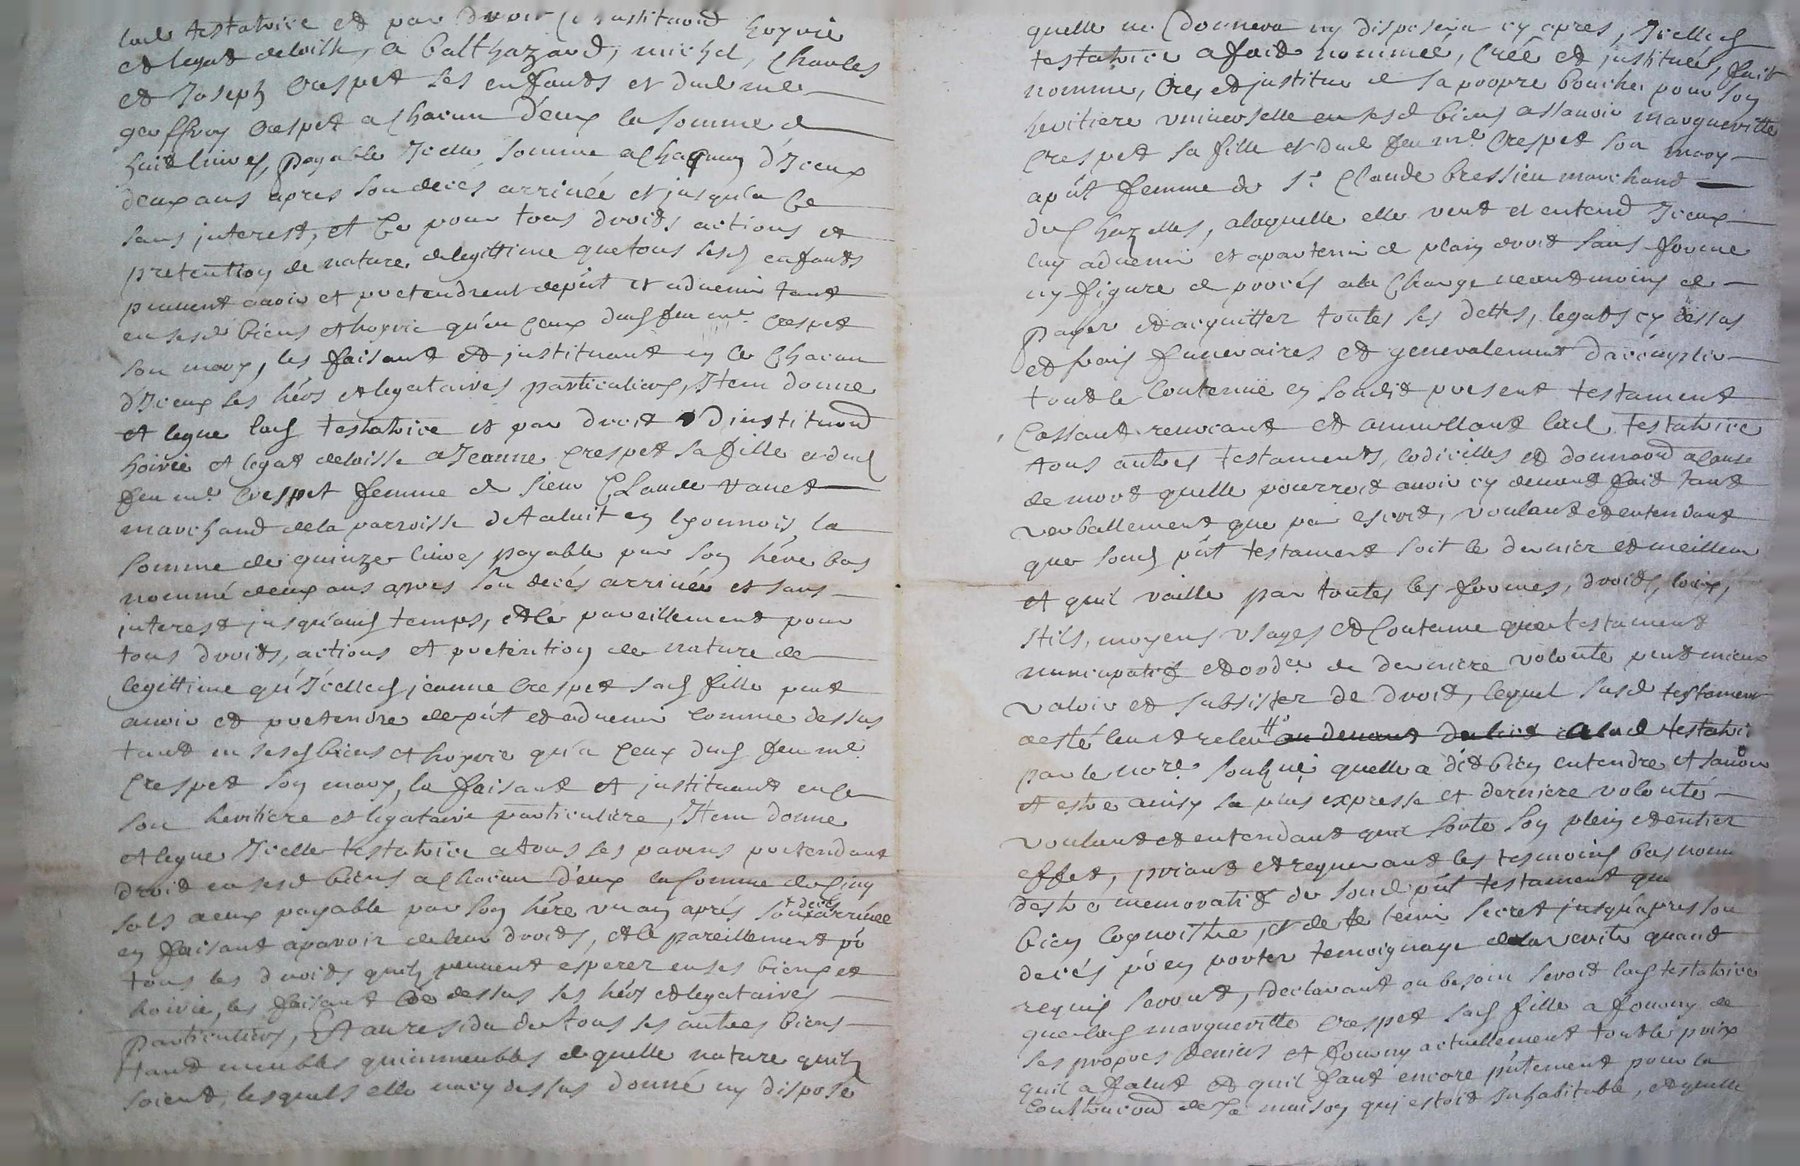 lad testatrice et par droit d'institution hoyrie
et legat delaisse, a Balthazard, michel, Charles
et Joseph Crespet ses enfants et dud me
geoffroy Crespet a Chacun d'eux la somme de
huit livres, payable Icelle somme a Chaqun d'Iceux
deux ans apres son deces arrivée et jusqu'a Ce
sans interest, et Ce pour tous droits actions et
pretention de nature de legittime que tous sesd enfants
peuvent avoir et pretendre de pnt et advenir tant
en sesd biens et hoyrie qu'en Ceux dud feu me Crespet
son mary, les faisant et instituant en Ce Chacun
d'Iceux ses hérs et legataires particuliers, Item donne
et legue lad testatrice et par droit d'institution
hoirie et legat delaisse a Jeanne Crespet sa fille et dud
feu me Crespet femme de sieur Claude
marchand de la parroisse de en lyonnois la
somme de quinze livres payable par son hére bas
nommé deux ans apres son decés arrivée et sans
interest jusqu'aud temps, et Ce pareillement pour
tous droits, actions et pretention de nature de
legittime qu'Icelled jeanne Crespet sad fille peut
avoir et pretendre de pnt et advenir Comme dessus
tant en sesd biens et hoyrie qu'a Ceux dud feu me
Crespet son mary, la faisant et instituant en Ce
son heritiere et legataire particuliere, Item donne
et legue Icelle testatrice a tous ses parens pretendant
droit en sesd biens a Chacun d'eux la somme de Cinq
sols a eux payable par son hére un an aprés son deces arrivée
en faisant aparoir de leur droits, et Ce pareillement po
tous les droits quils peuvent esperer en ses biens et
hoirie, les faisant Comme dessus ses hérs et legataires
particuliers, Et au residu de tous ses autres biens
tant meubles qu'immeubles de quelle nature quils
soient, lesquels elle n'a cy dessus donné ny disposé
quelle ne donnera ny disposera cy apres, Icelled
testatrice a fait nommée, Créé et instituée, fait
nomme, Crée et institue de sa propre bouche pour son
heritiere universelle en sesd biens assavoir margueritte
Crespet sa fille et dud feu me Crespet son mary
a pnt femme de sr Claude Bressieu marchand
dud hazelles, a laquelle elle veut et entend Iceux
luy advenir et apartenir de plain droit sans forme
ny figure de procés a la Charge neantmoins de
payer et acquitter toutes ses dettes, legats cy dessus
et frais funeraires et generalement d'accomplir
tout le Contenüe en son dit present testament
Cassant revocant et annullant lad testatrice
tous autres testaments, codicilles et donnaon a cause
de mort quelle pourroit avoir cy devant fait tant
verballement que par escrit, voulant et entendant
que sond pnt testament soit le dernier et meilleur
et quil vaille par toutes les formes, droits, loix,
stils, moyens usages et Coutume que testament
nuncupatif et ordce de derniere volonte peut mieux
valoir et subsister de droit, lequel susd testament
a esté leu et releu a lad testatrice
par le nore soubné quelle a dit bien entendre et savoir
et estre ainsy sa plus expresse et derniere volonté
voulant et entendant quil sorte son plein et entier
effet, priant et requerant les tesmoins bas nom
destre memoratif de sond pnt testament que
bien Cognoistre, et de le tenir secret jusqu'apres son
decés po en porter temoignage de la verite quand
requis seront, declarant au besoin seroit lad testatrice
que lad margueritte Crespet sad fille a fourny de
ses propres deniers et fourny actuellement tout le prix
quil a falut et quil faut encore pntement pour la
Construcon de sa maison qui estoit Inhabitable, et quelle